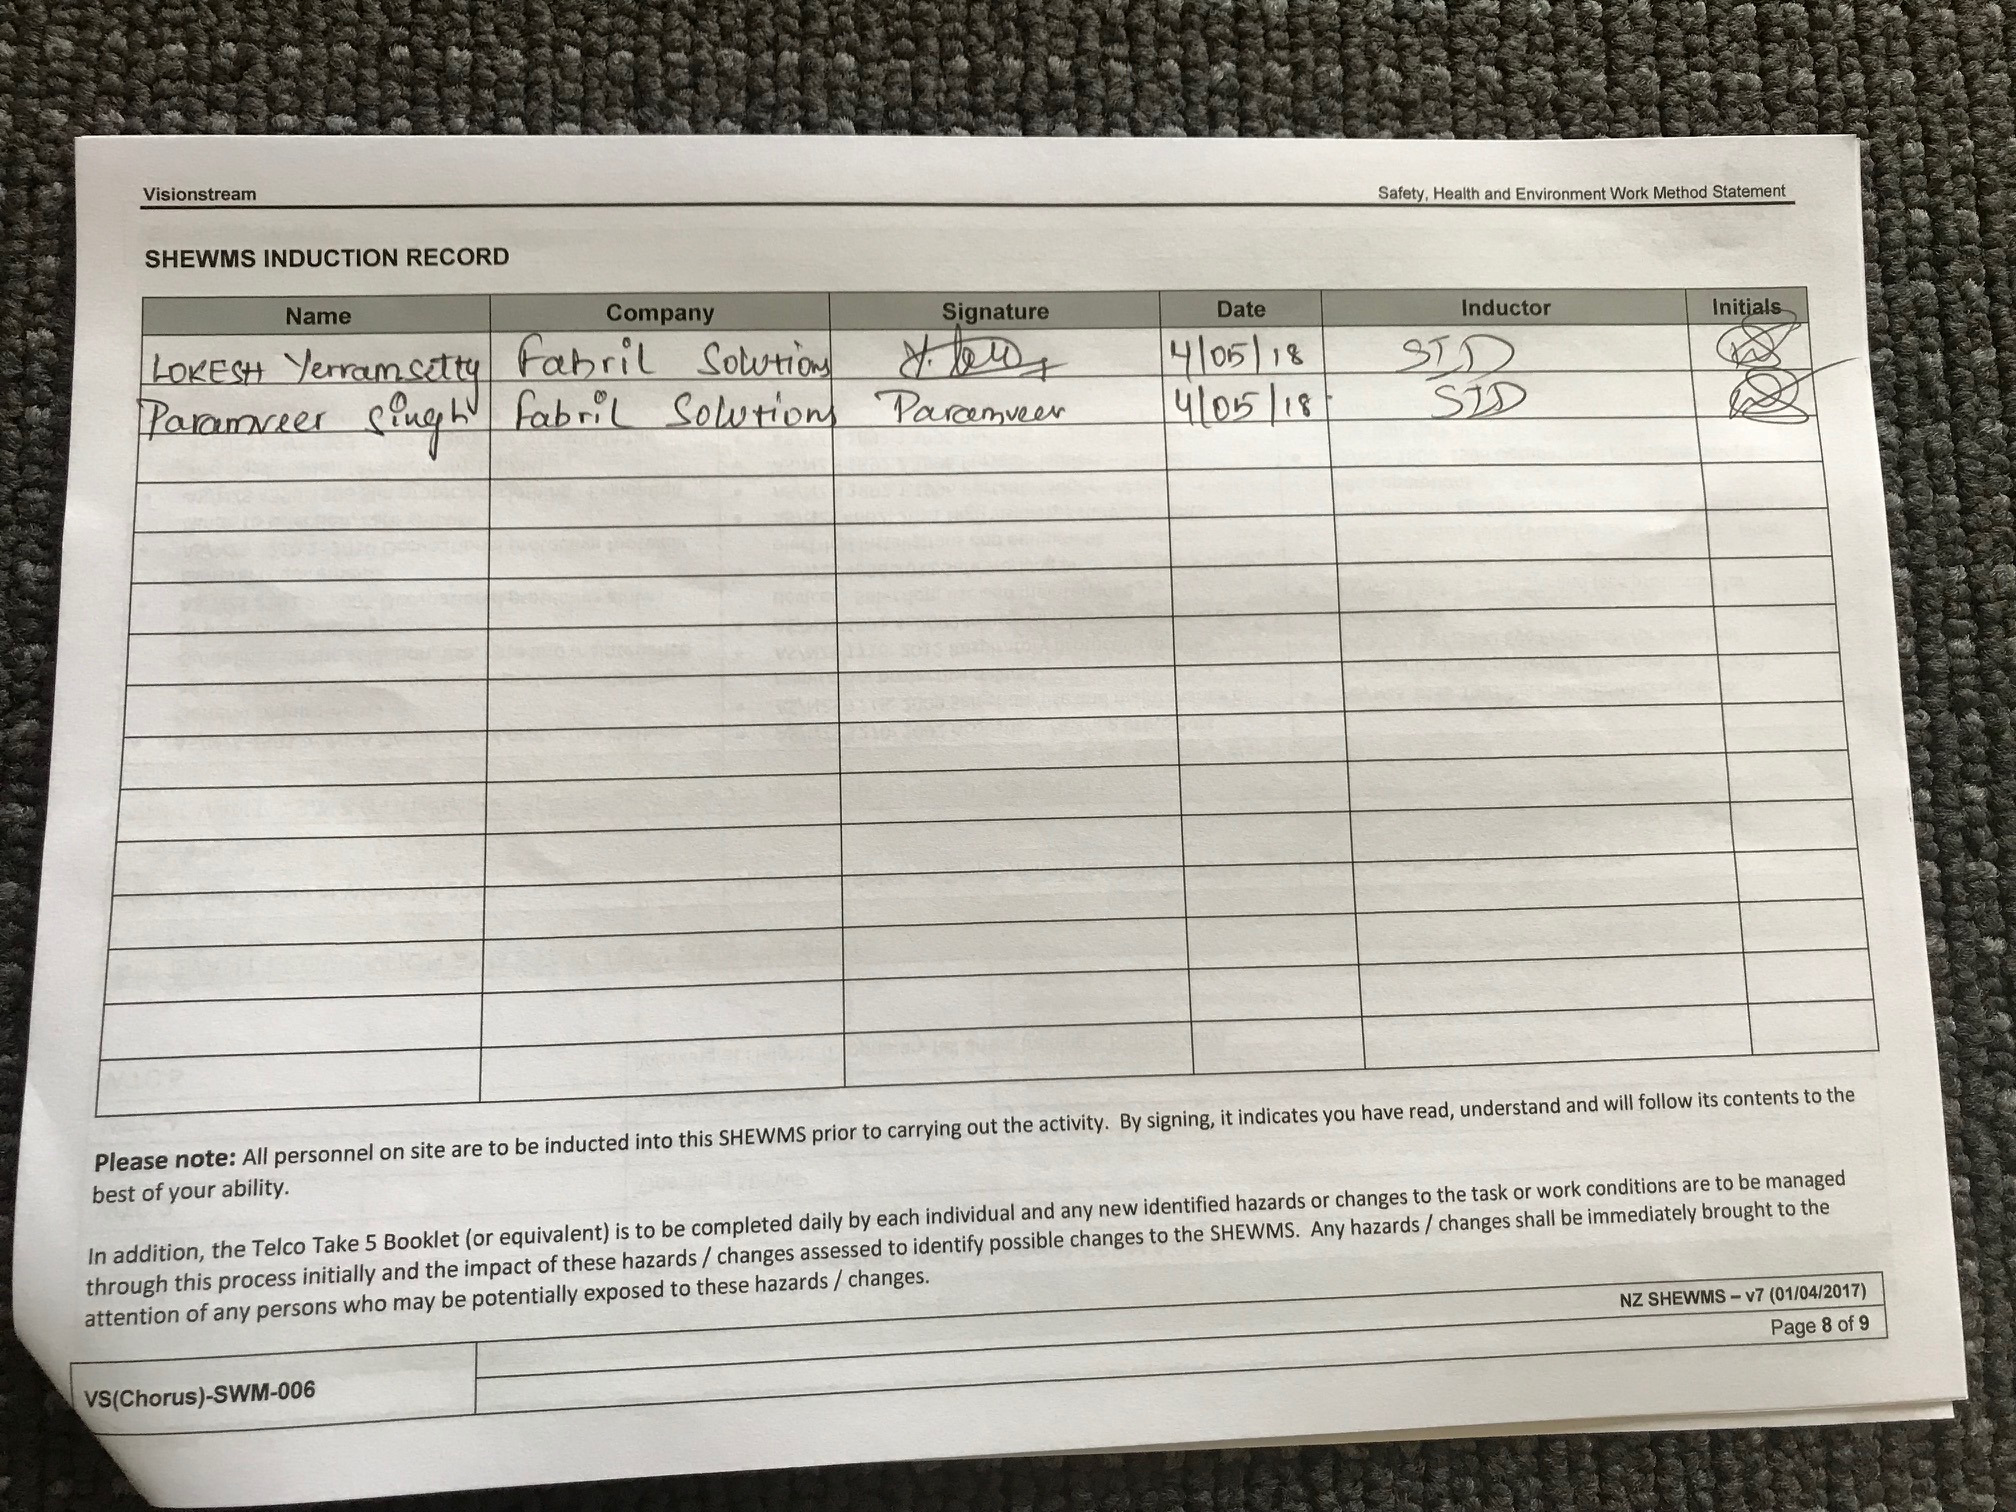 Visionstream Safety, Health and Environment Work Method Statement
SHEWMS INDUCTION RECORD
Name Company Signature Date Inductor Initials
LOKESH Yerramsetty Fabril Solutions 4/05/18 STD
Paramveer Singh Fabril Solutions Paramveer 4/05/18 STD
Please note: All personnel on site are to be inducted into this SHEWMS prior to carrying out the activity. By signing, it indicates you have read, understand and will follow its contents to the
best of your ability.
In addition, the Telco Take 5 Booklet (or equivalent) is to be completed daily by each individual and any new identified hazards or changes to the task or work conditions are to be managed
through this process initially and the impact of these hazards / changes assessed to identify possible changes to the SHEWMS. Any hazards / changes shall be immediately brought to the
attention of any persons who may be potentially exposed to these hazards / changes.
NZ SHEWMS – v7 (01/04/2017)
VS(Chorus)-SWM-006 Page 8 of 9